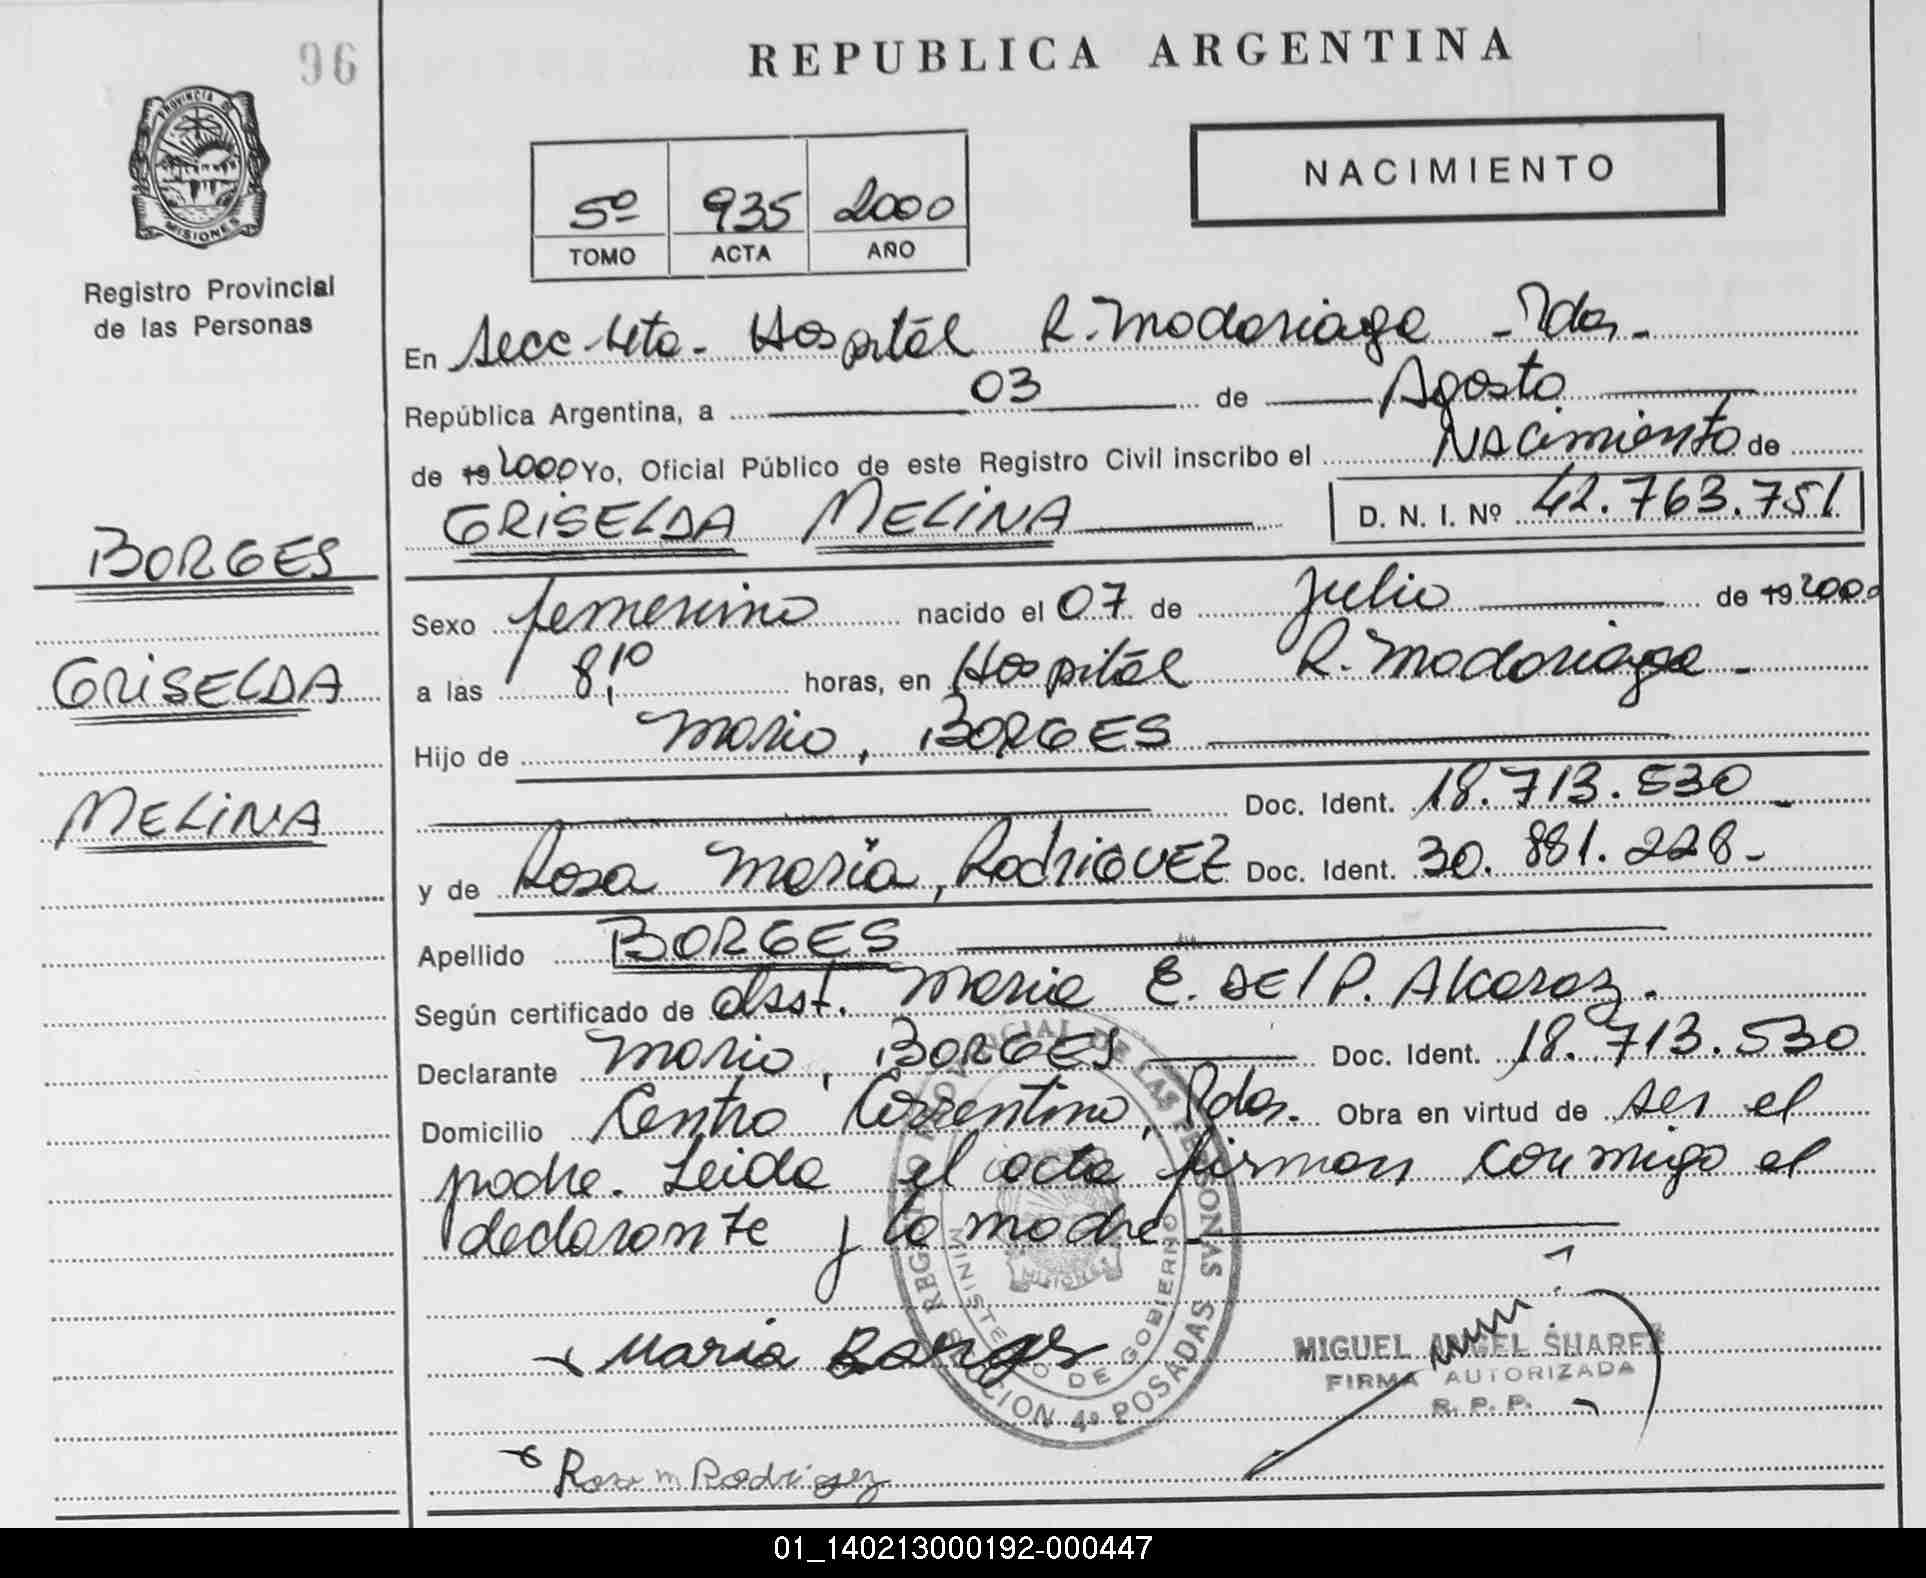 96
REPUBLICA ARGENTINA
PROVINCIA DE MISIONES
NACIMIENTO
5º 935 2000
TOMO ACTA AÑO
Registro Provincial
de las Personas
En Secc 4ta. Hospital R. Madariaga - Pdas.
República Argentina, a 03 de Agosto
de 19 2000 Yo, Oficial Público de este Registro Civil inscribo el Nacimiento de
GRISELDA MELINA D. N. I. Nº 42.763.751
BORGES
GRISELDA
MELINA
Sexo femenino nacido el 07 de Julio de 19 2000
a las 8,10 horas, en Hospital R. Madariaga -
Hijo de Mario, BORGES
Doc. Ident. 18.713.530 -
y de Rosa Maria, RodriGUEZ Doc. Ident. 30.881.228-
Apellido BORGES
Según certificado de obst. Maria E. DEl P. Alcaraz.
Declarante Mario, BORGES Doc. Ident. 18.713.530
Domicilio Centro Correntino, Pdas. Obra en virtud de ser el
padre. Leida el acta firman conmigo el
declarante y la madre
REGISTRO PROVINCIAL DE LAS PERSONAS
MINISTERIO DE GOBIERNO
MISIONES
SECCION 4º POSADAS
Maria Borges
MIGUEL ANGEL SUAREZ
FIRMA AUTORIZADA
R. P. P.
Rosa m Rodriguez
01_140213000192-000447